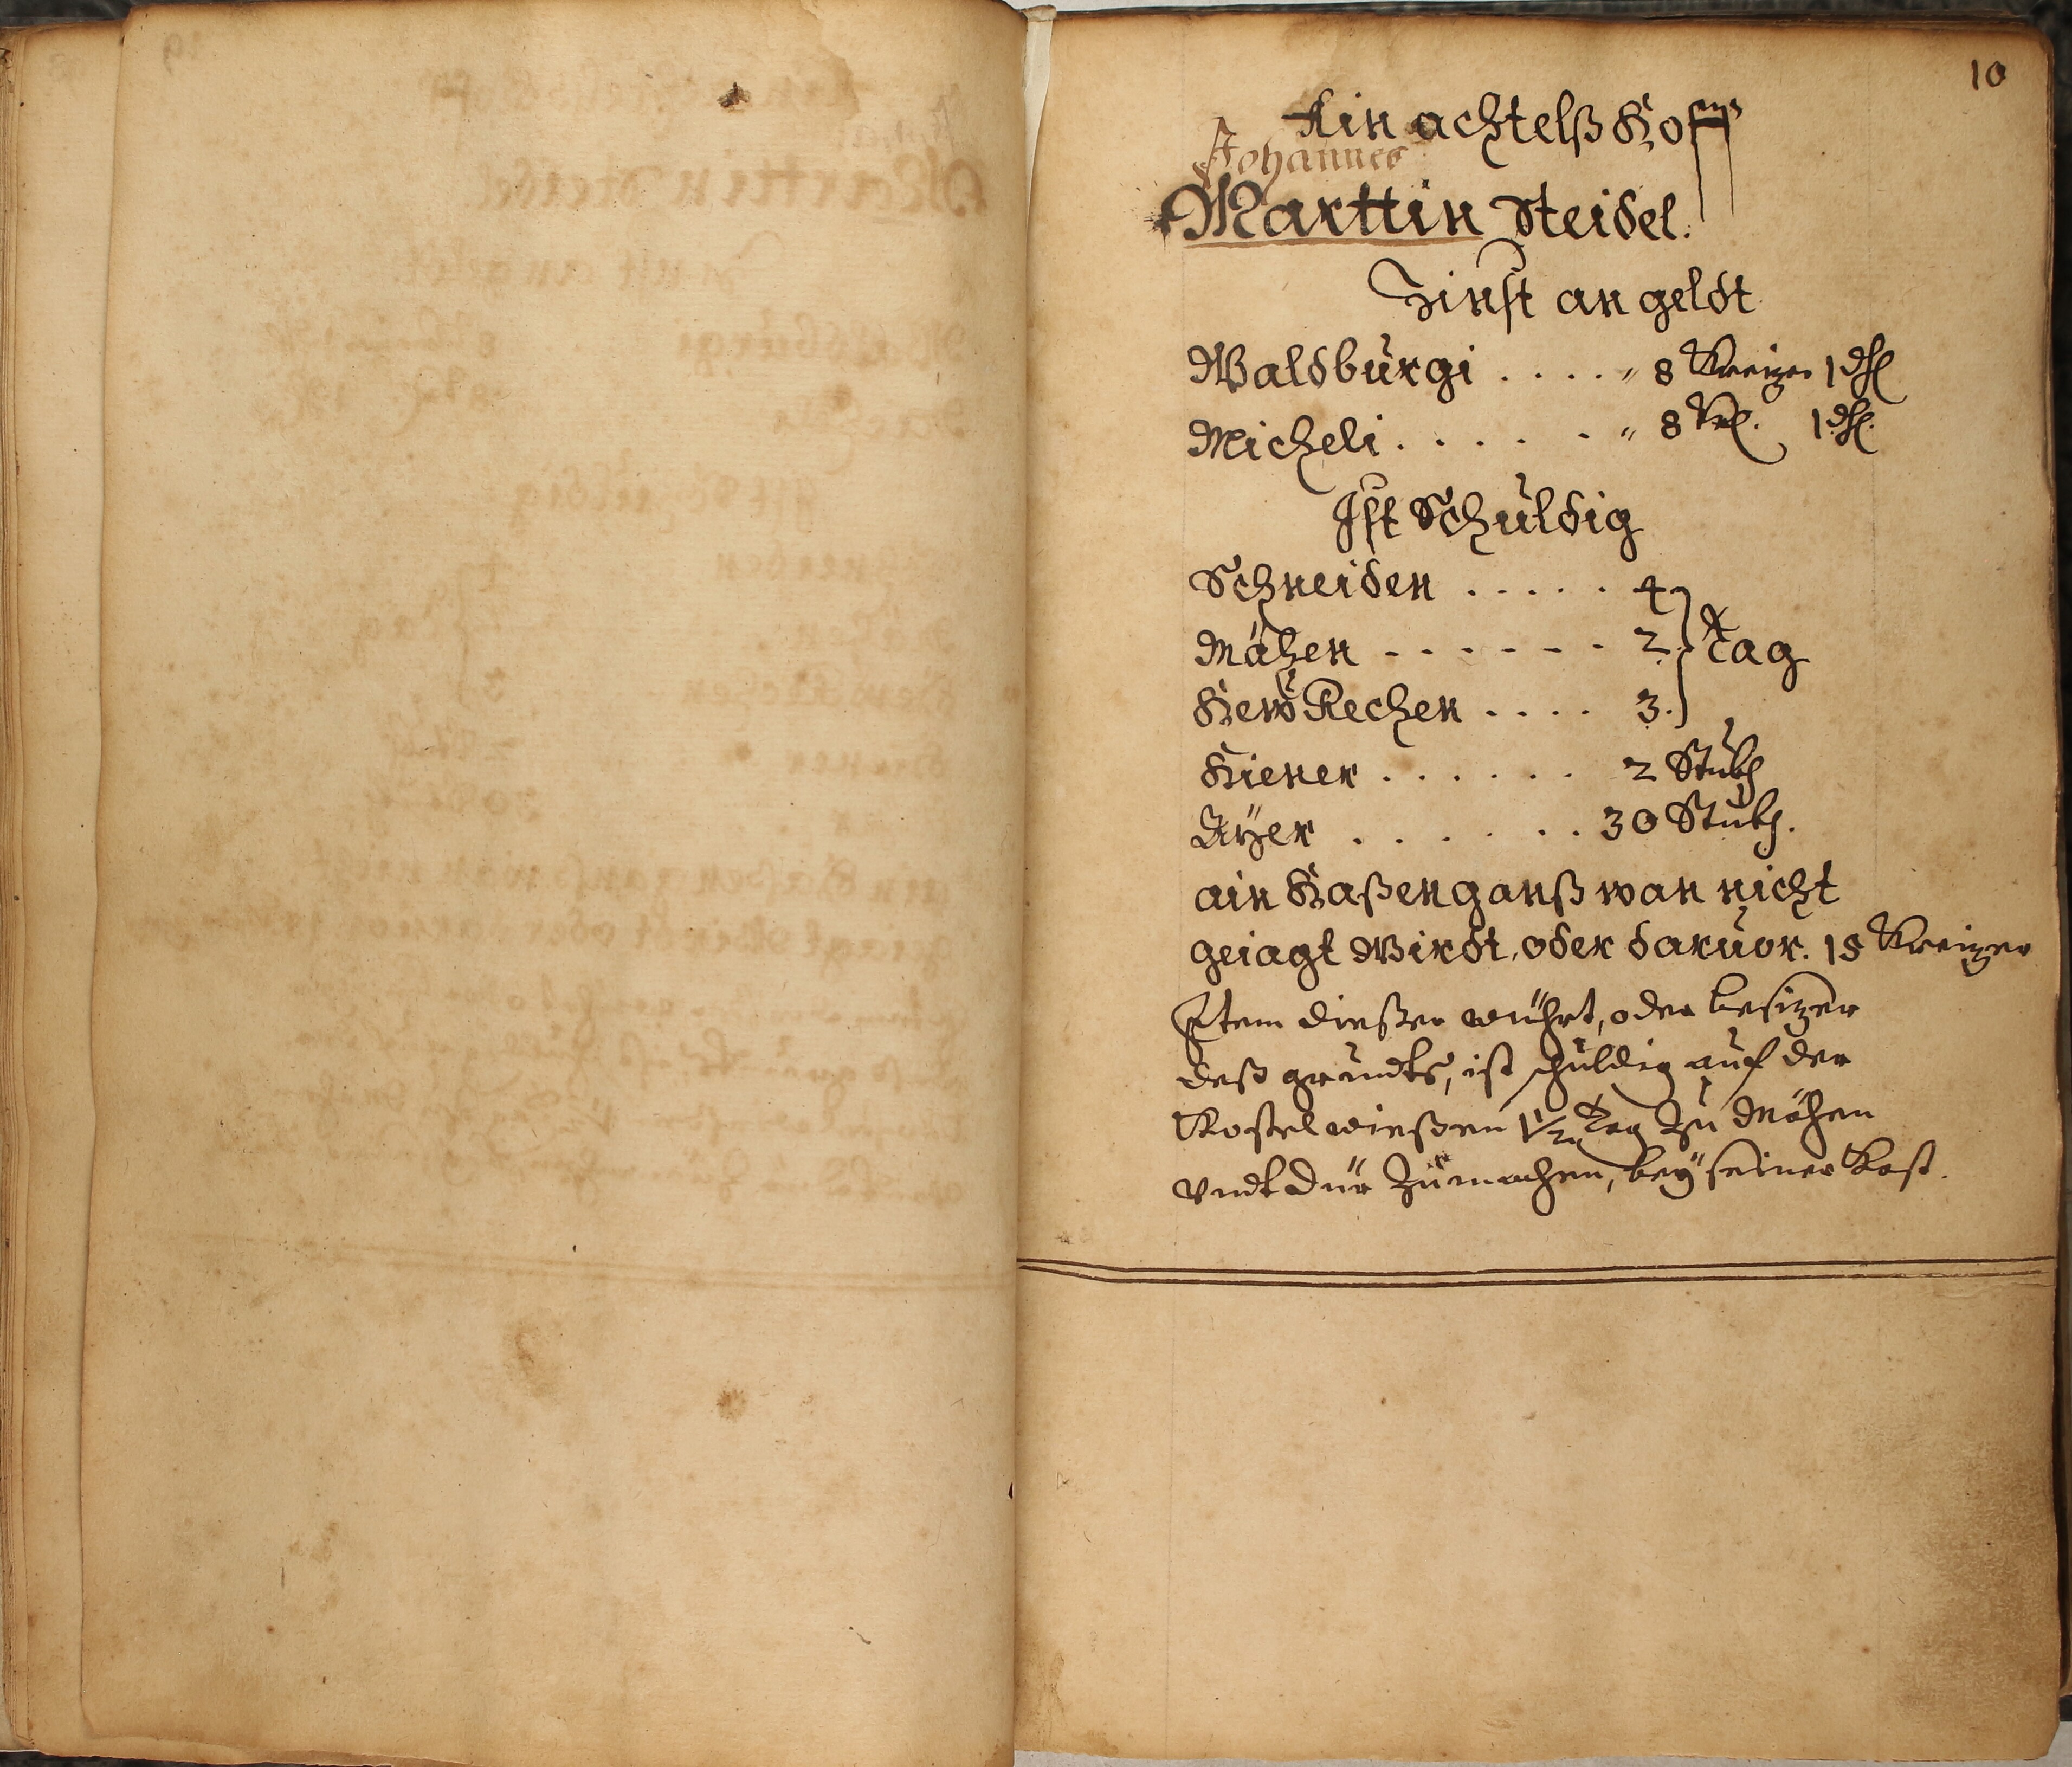 10
Ein achtelß Hoff
Johannes
Marttin Steidel.
Zinst an geldt
Waldburgi . . . . " 8 Kreizer 1 ₰
Micheli . . . . . " 8 Kr. 1 ₰
Ist Schuldig
Schneiden . . . . . 4
Mähen - - - - - - 2. } tag
Hew Rechen . . . . 3.
Hiener . . . . . . 2 Stukh
Ayer . . . . . . 30 Stukh.
ain Haßen ganß wan nicht
geiagt Wirdt, oder daruor. 15 Kreizer
Item dießer würth, oder besizer
deß grundts, ist schuldig auf der
wießen 1½ Tag zu Mähen
vndt dür zu machen, bey seiner Kost.